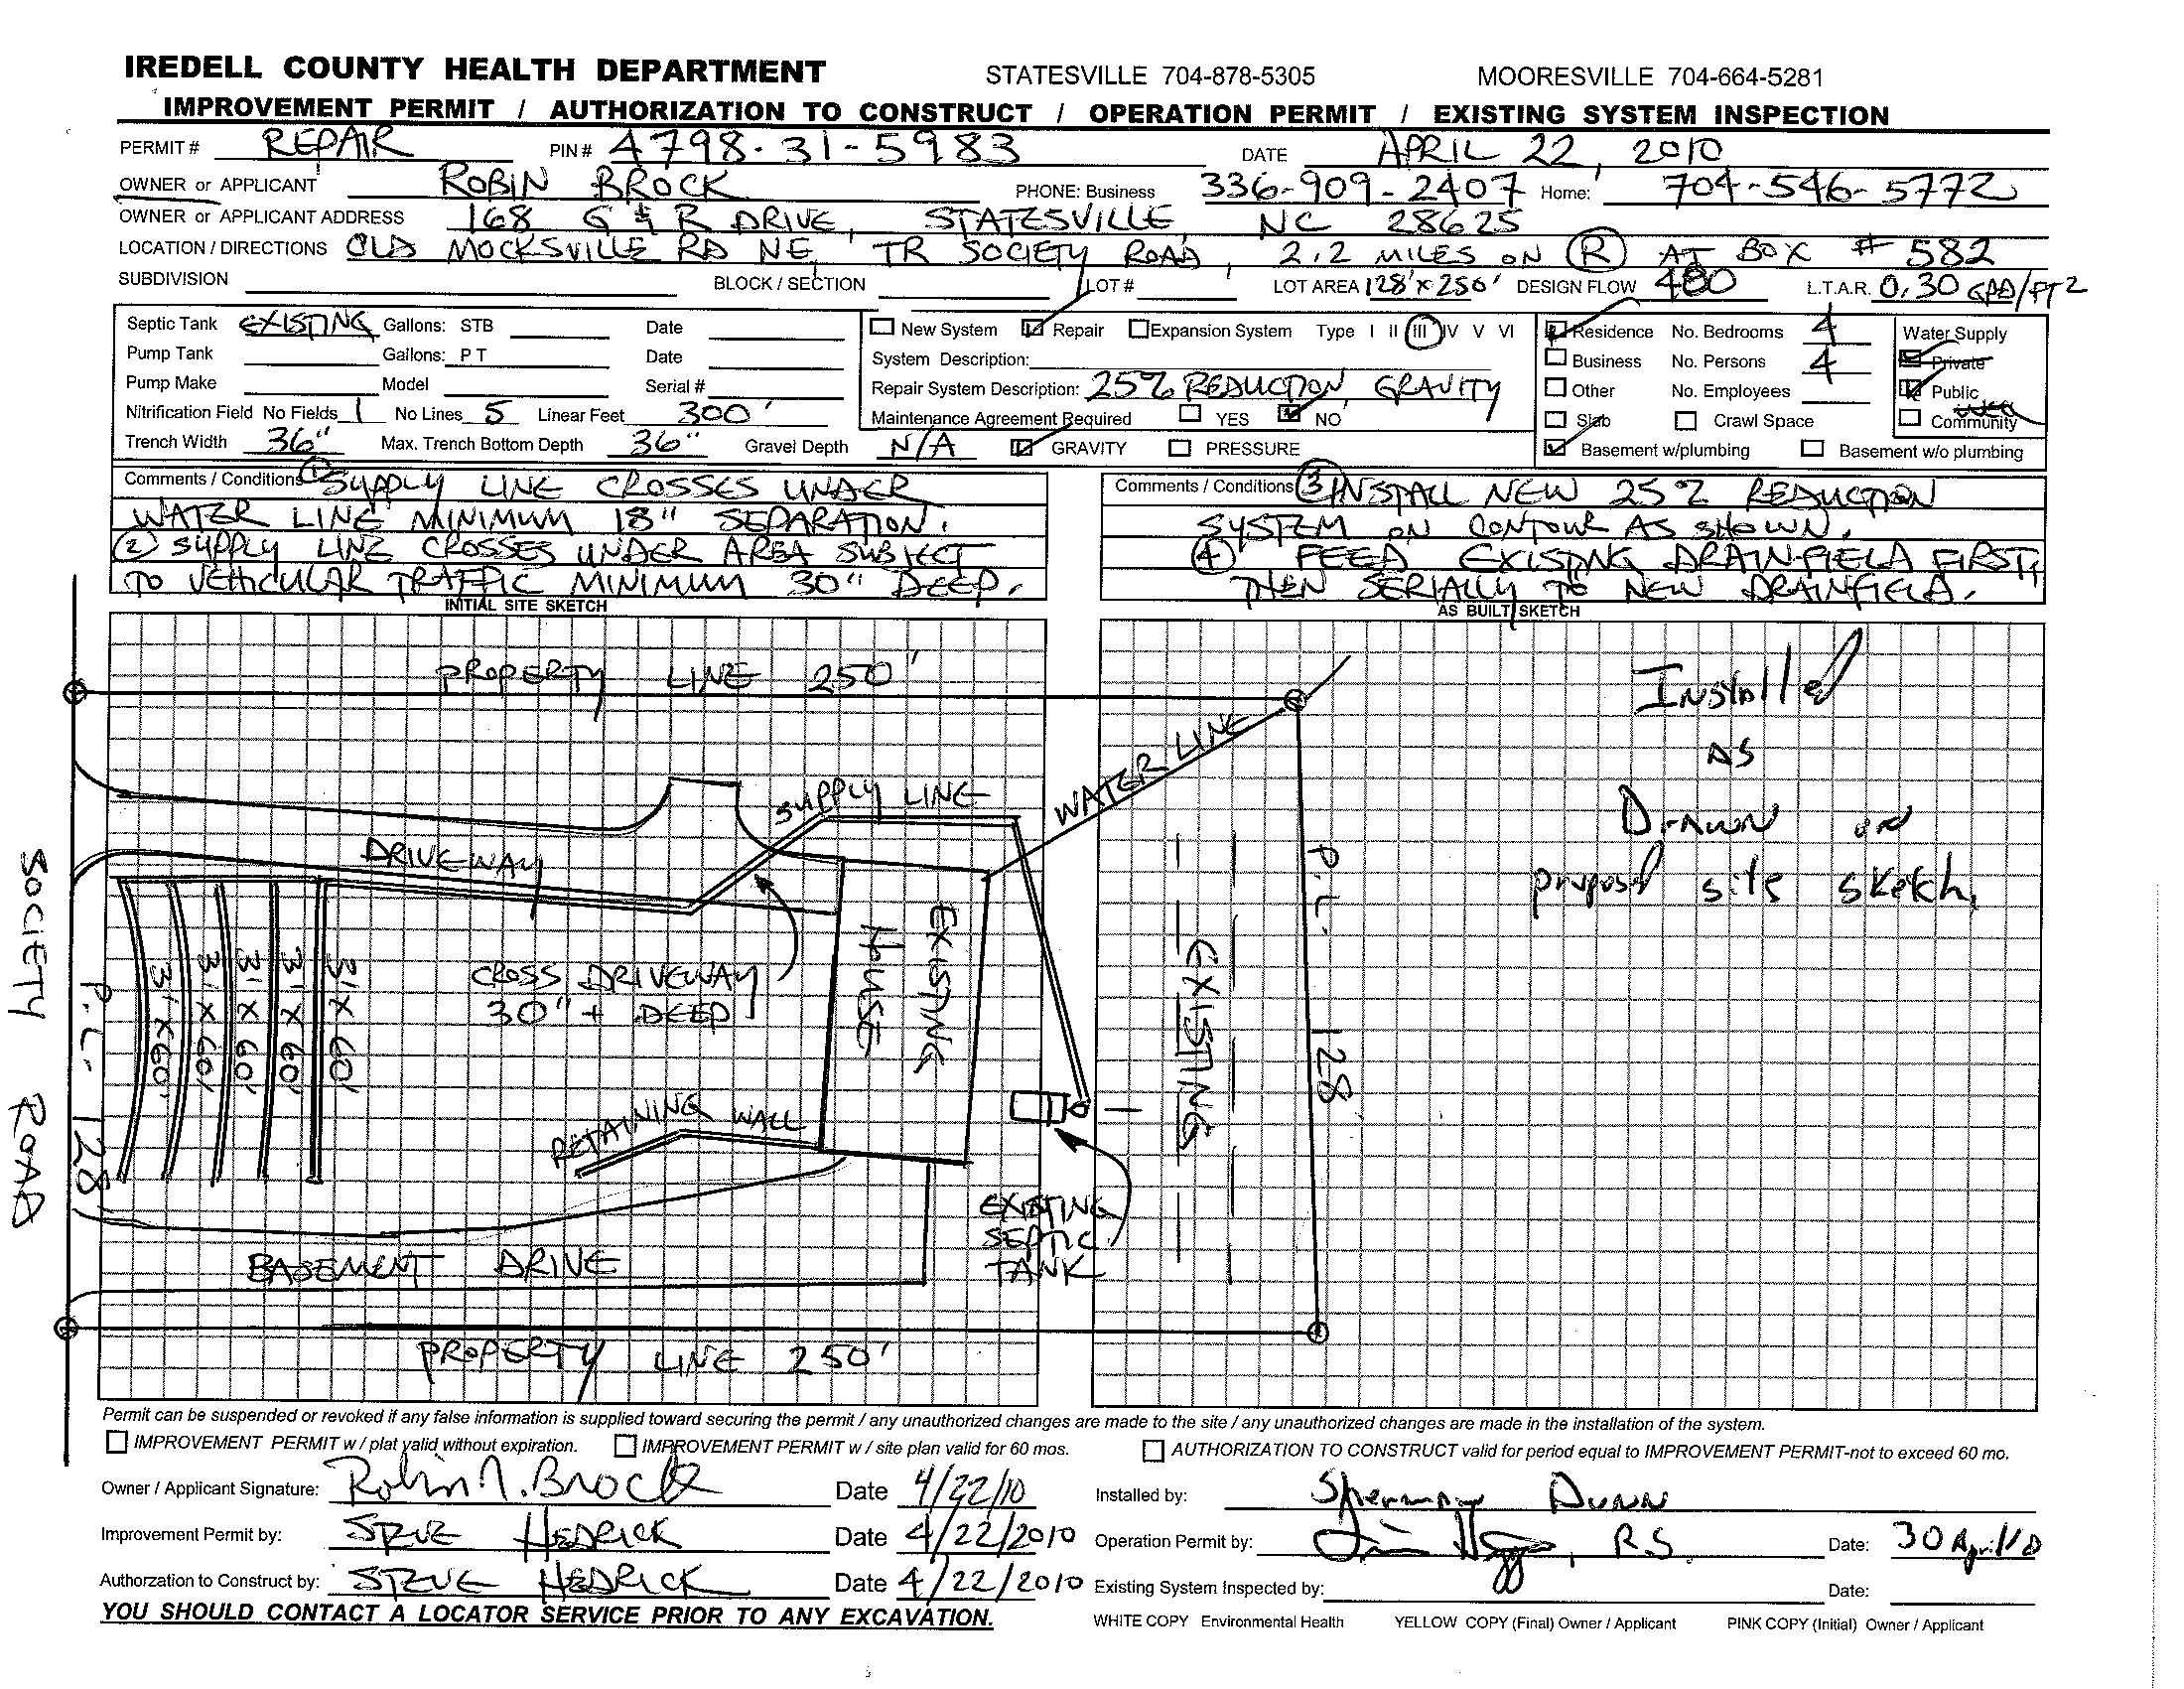 IREDELL COUNTY HEALTH DEPARTMENT STATESVILLE 704-878-5305 MOORESVILLE 704-664-5281
IMPROVEMENT PERMIT / AUTHORIZATION TO CONSTRUCT / OPERATION PERMIT / EXISTING SYSTEM INSPECTION
PERMIT # REPAIR PIN # 4798-31-5983 DATE APRIL 22, 2010
OWNER or APPLICANT ROBIN BROCK PHONE: Business 336-909-2407 Home: 704-546-5772
OWNER or APPLICANT ADDRESS 168 G & R DRIVE, STATESVILLE, NC 28625
LOCATION / DIRECTIONS OLD MOCKSVILLE RD NE, TR SOCIETY ROAD, 2.2 MILES ON R AT BOX # 582
SUBDIVISION BLOCK / SECTION LOT # LOT AREA 128' X 250' DESIGN FLOW 480 L.T.A.R. 0.30 GPD/FT2
Septic Tank EXISTING Gallons: STB Date
Pump Tank Gallons: P T Date
Pump Make Model Serial #
Nitrification Field No Fields 1 No Lines 5 Linear Feet 300'
Trench Width 36" Max. Trench Bottom Depth 36" Gravel Depth N/A GRAVITY PRESSURE
New System Repair Expansion System Type I II III IV V VI
System Description:
Repair System Description: 25% REDUCTION, GRAVITY
Maintenance Agreement Required YES NO
Residence No. Bedrooms 4
Business No. Persons 4
Other No. Employees
Slab Crawl Space
Basement w/plumbing Basement w/o plumbing
Water Supply
Private
Public
Community
Comments / Conditions 1 SUPPLY LINE CROSSES UNDER
WATER LINE MINIMUM 18" SEPARATION.
2 SUPPLY LINE CROSSES UNDER AREA SUBJECT
TO VEHICULAR TRAFFIC MINIMUM 30" DEEP.
INITIAL SITE SKETCH
Comments / Conditions 3 INSTALL NEW 25% REDUCTION
SYSTEM ON CONTOUR AS SHOWN.
4 FEED EXISTING DRAINFIELD FIRST,
THEN SERIALLY TO NEW DRAINFIELD.
AS BUILT SKETCH
PROPERTY LINE 250'
SUPPLY LINE
WATER LINE
DRIVEWAY
SOCIETY ROAD
P.L. 128
3' X 60'
3' X 60'
3' X 60'
3' X 60'
3' X 60'
CROSS DRIVEWAY
30" + DEEP
EXISTING
HOUSE
RETAINING WALL
EXISTING
SEPTIC
TANK
BASEMENT DRIVE
PROPERTY LINE 250'
EXISTING
P.L. 128
Installed
AS
Drawn on
proposed site sketch.
Permit can be suspended or revoked if any false information is supplied toward securing the permit / any unauthorized changes are made to the site / any unauthorized changes are made in the installation of the system.
IMPROVEMENT PERMIT w / plat valid without expiration. IMPROVEMENT PERMIT w / site plan valid for 60 mos. AUTHORIZATION TO CONSTRUCT valid for period equal to IMPROVEMENT PERMIT-not to exceed 60 mo.
Owner / Applicant Signature: Robin Brock Date 4/22/10 Installed by: Sherman Dunn
Improvement Permit by: STEVE HEDRICK Date 4/22/2010 Operation Permit by: R.S. Date: 30 April 10
Authorzation to Construct by: STEVE HEDRICK Date 4/22/2010 Existing System Inspected by: Date:
YOU SHOULD CONTACT A LOCATOR SERVICE PRIOR TO ANY EXCAVATION. WHITE COPY Environmental Health YELLOW COPY (Final) Owner / Applicant PINK COPY (Initial) Owner / Applicant